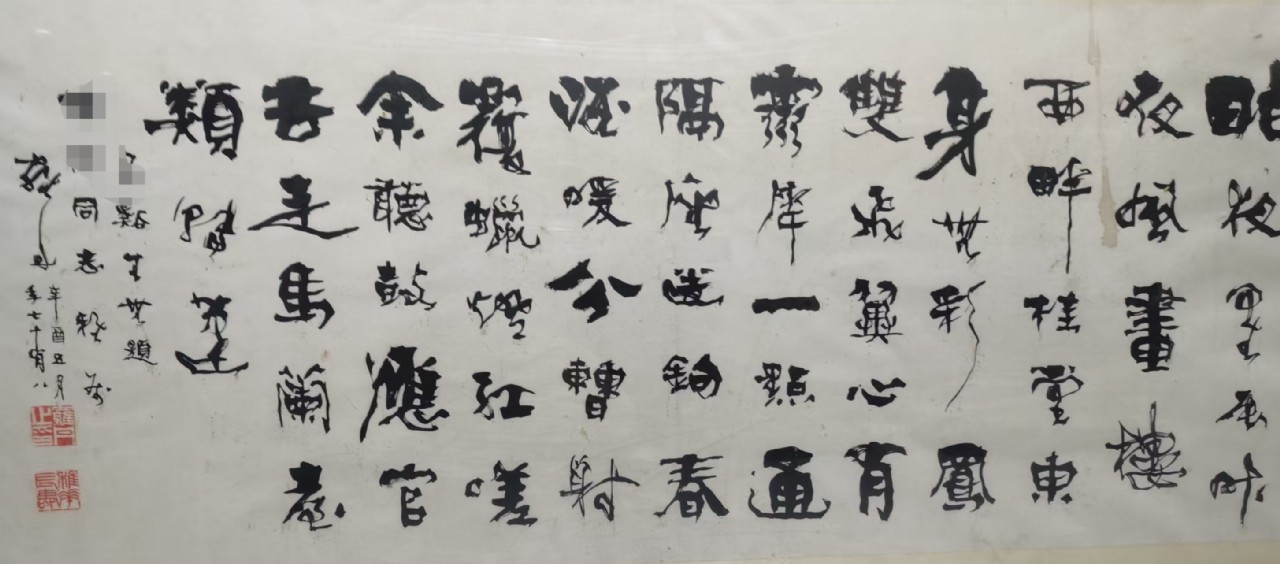 昨夜星辰昨
夜風畫樓
西畔桂堂東
身無彩鳳
雙飛翼心有
靈犀一點通
隔座送鉤春
酒暖分曹射
覆蠟燈紅嗟
余聽鼓應官
去走馬蘭臺
類轉蓬
谿生無題
同志
辛酉五月
年七十有八